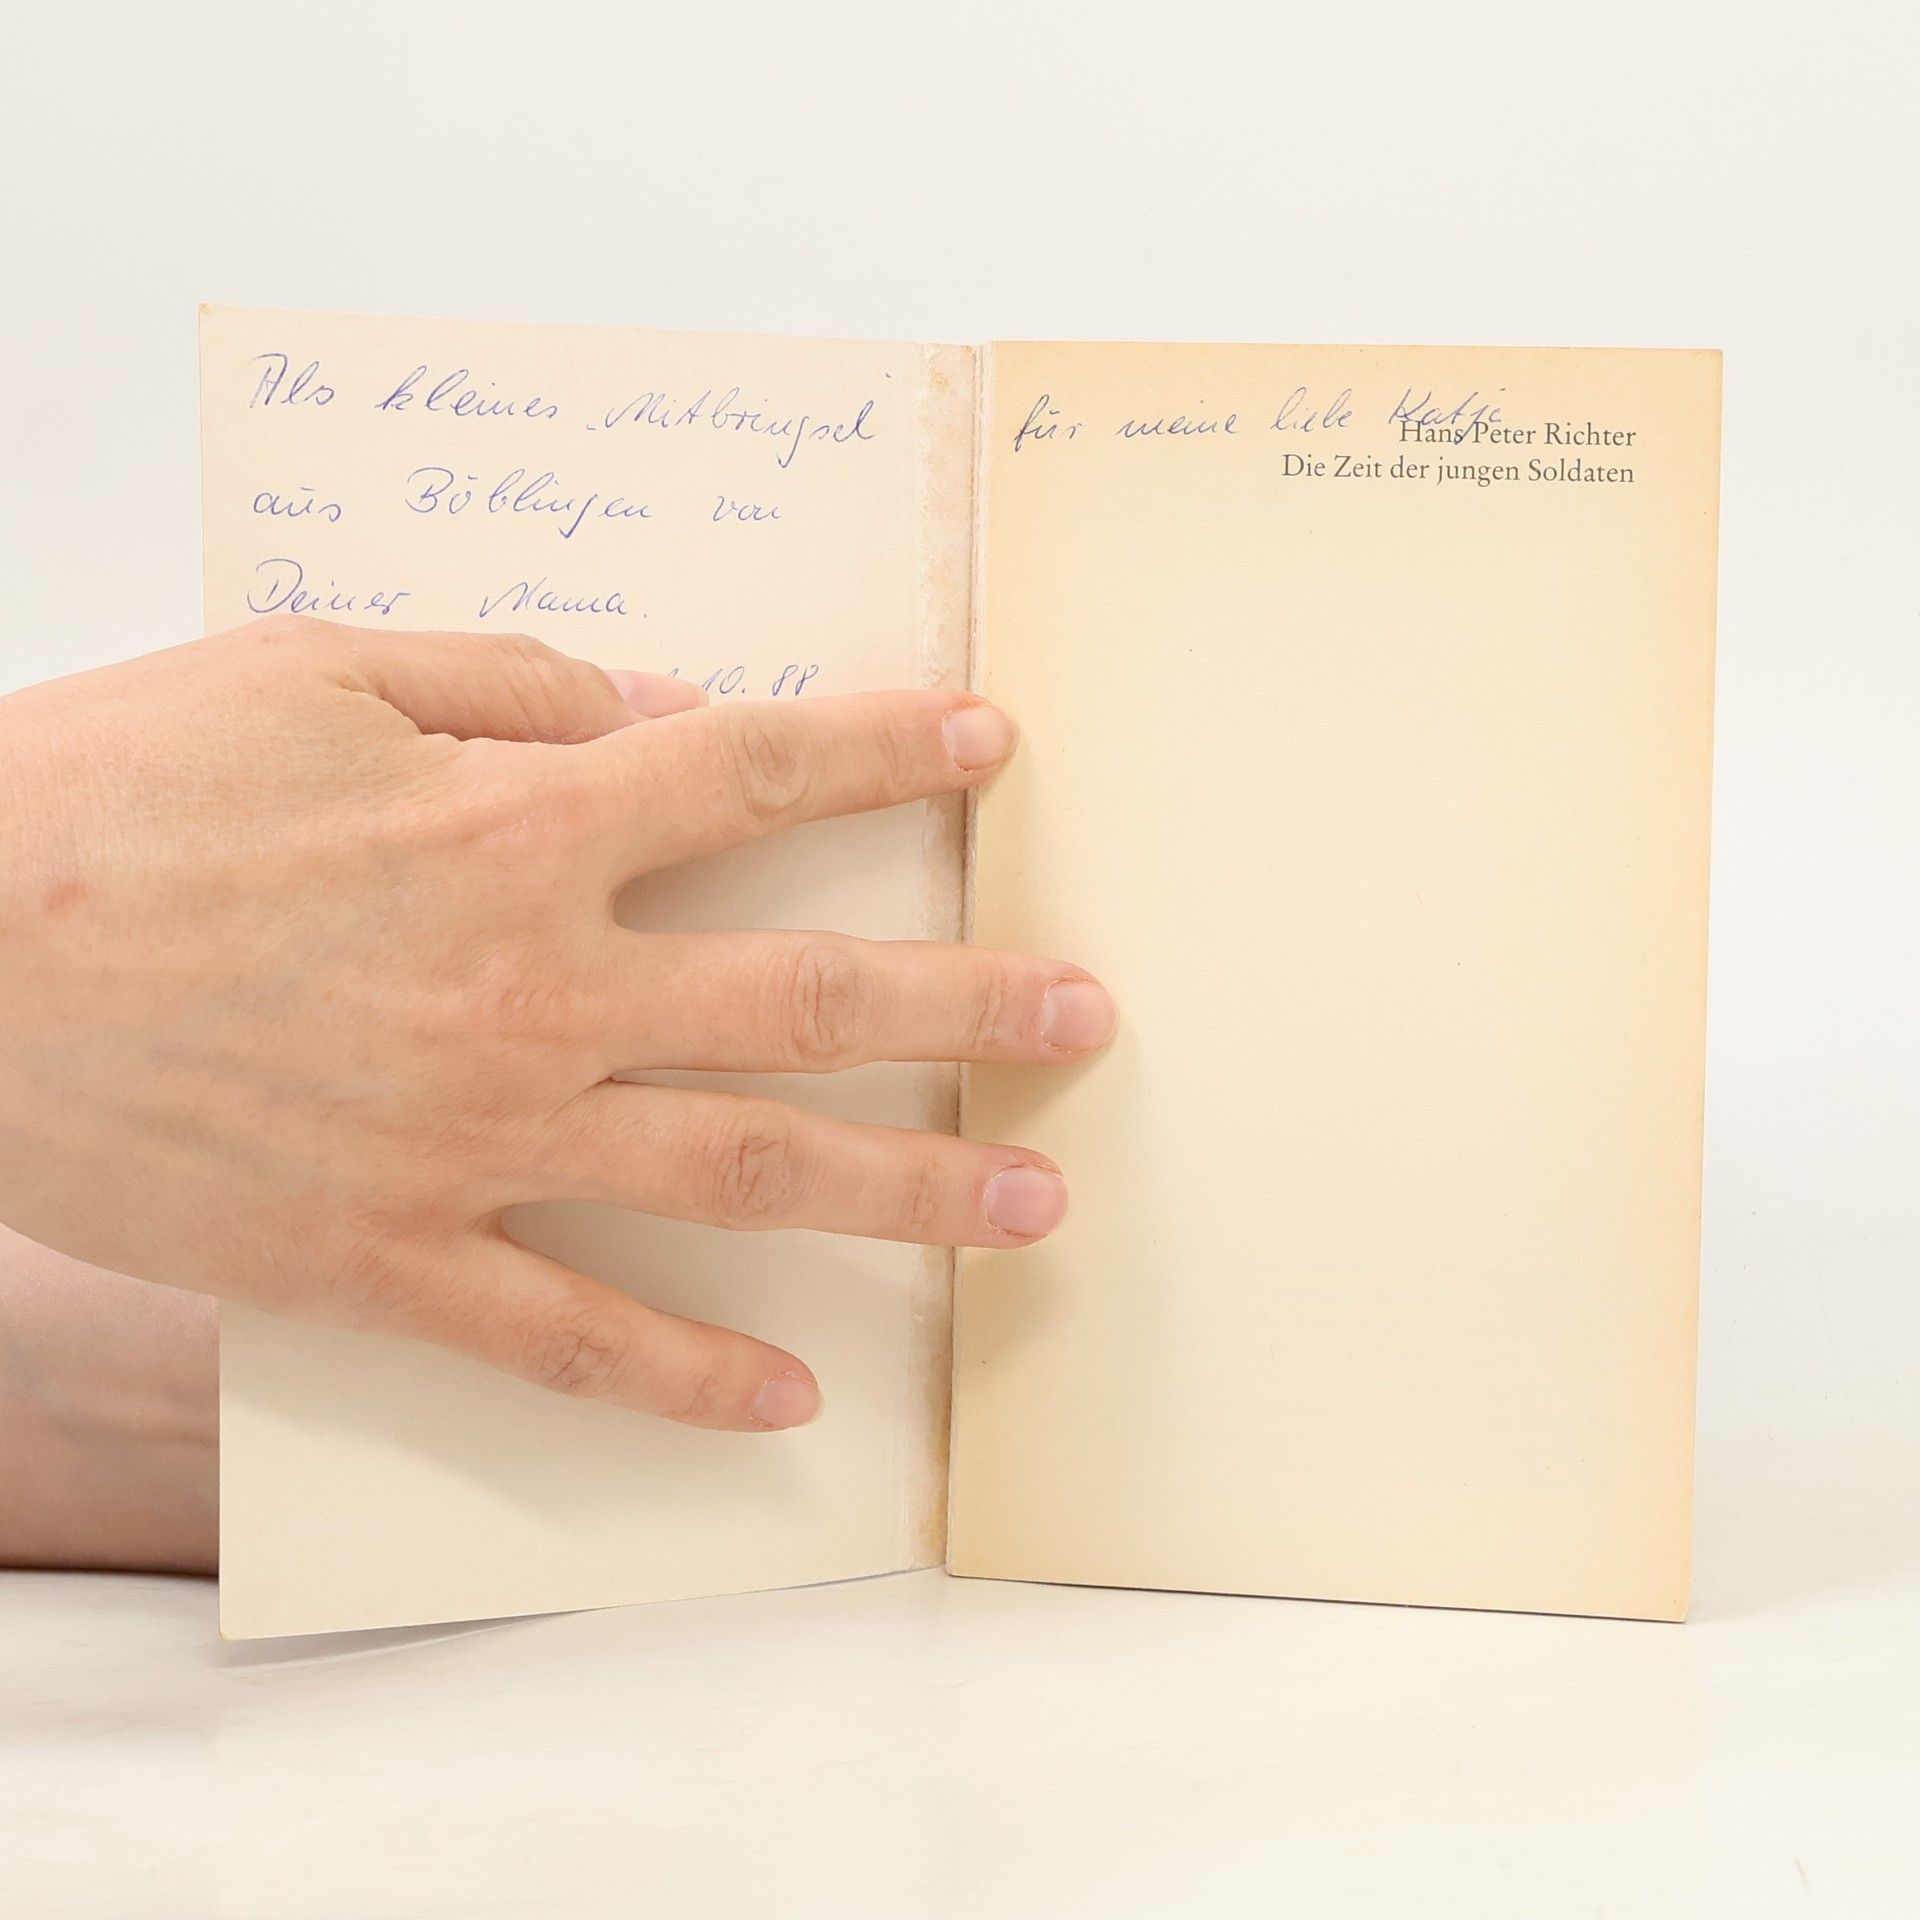 Als kleines „Mitbringsel"
aus Böblingen von
Deiner Mama.
10. 88
für meine liebe Katja
Hans Peter Richter
Die Zeit der jungen Soldaten